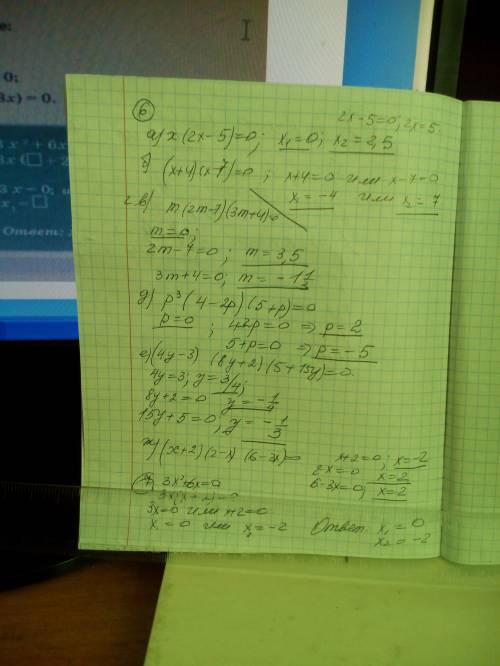 е:
0;
3x) = 0.
3x² + 6x
3x(□ + 2
3x = 0; и
x₁ = □
Ответ:
⑥
2x-5=0; 2x=5.
а) x(2x-5)=0; x₁=0; x₂=2,5
б) (x+4)(x-7)=0; x+4=0 или x-7=0
x₁=-4 или x₂=7
в) m(2m-7)(3m+4)=0
m=0;
2m-7=0; m=3,5
3m+4=0; m=-1 1/3
д) p³(4-2p)(5+p)=0
p=0; 4-2p=0 ⇒ p=2
5+p=0 ⇒ p=-5
е) (4y-3)(8y+2)(5+15y)=0
4y=3; y=3/4;
8y+2=0 y=-1/4
15y+5=0; y=-1/3
ж) (x+2)(2-x)(6-3x)=0 x+2=0; x=-2
2-x=0 x=2
6-3x=0; x=2
7. 3x²+6x=0
3x(x+2)=0
3x=0 или x+2=0
x₁=0 или x₂=-2 Ответ x₁=0
x₂=-2